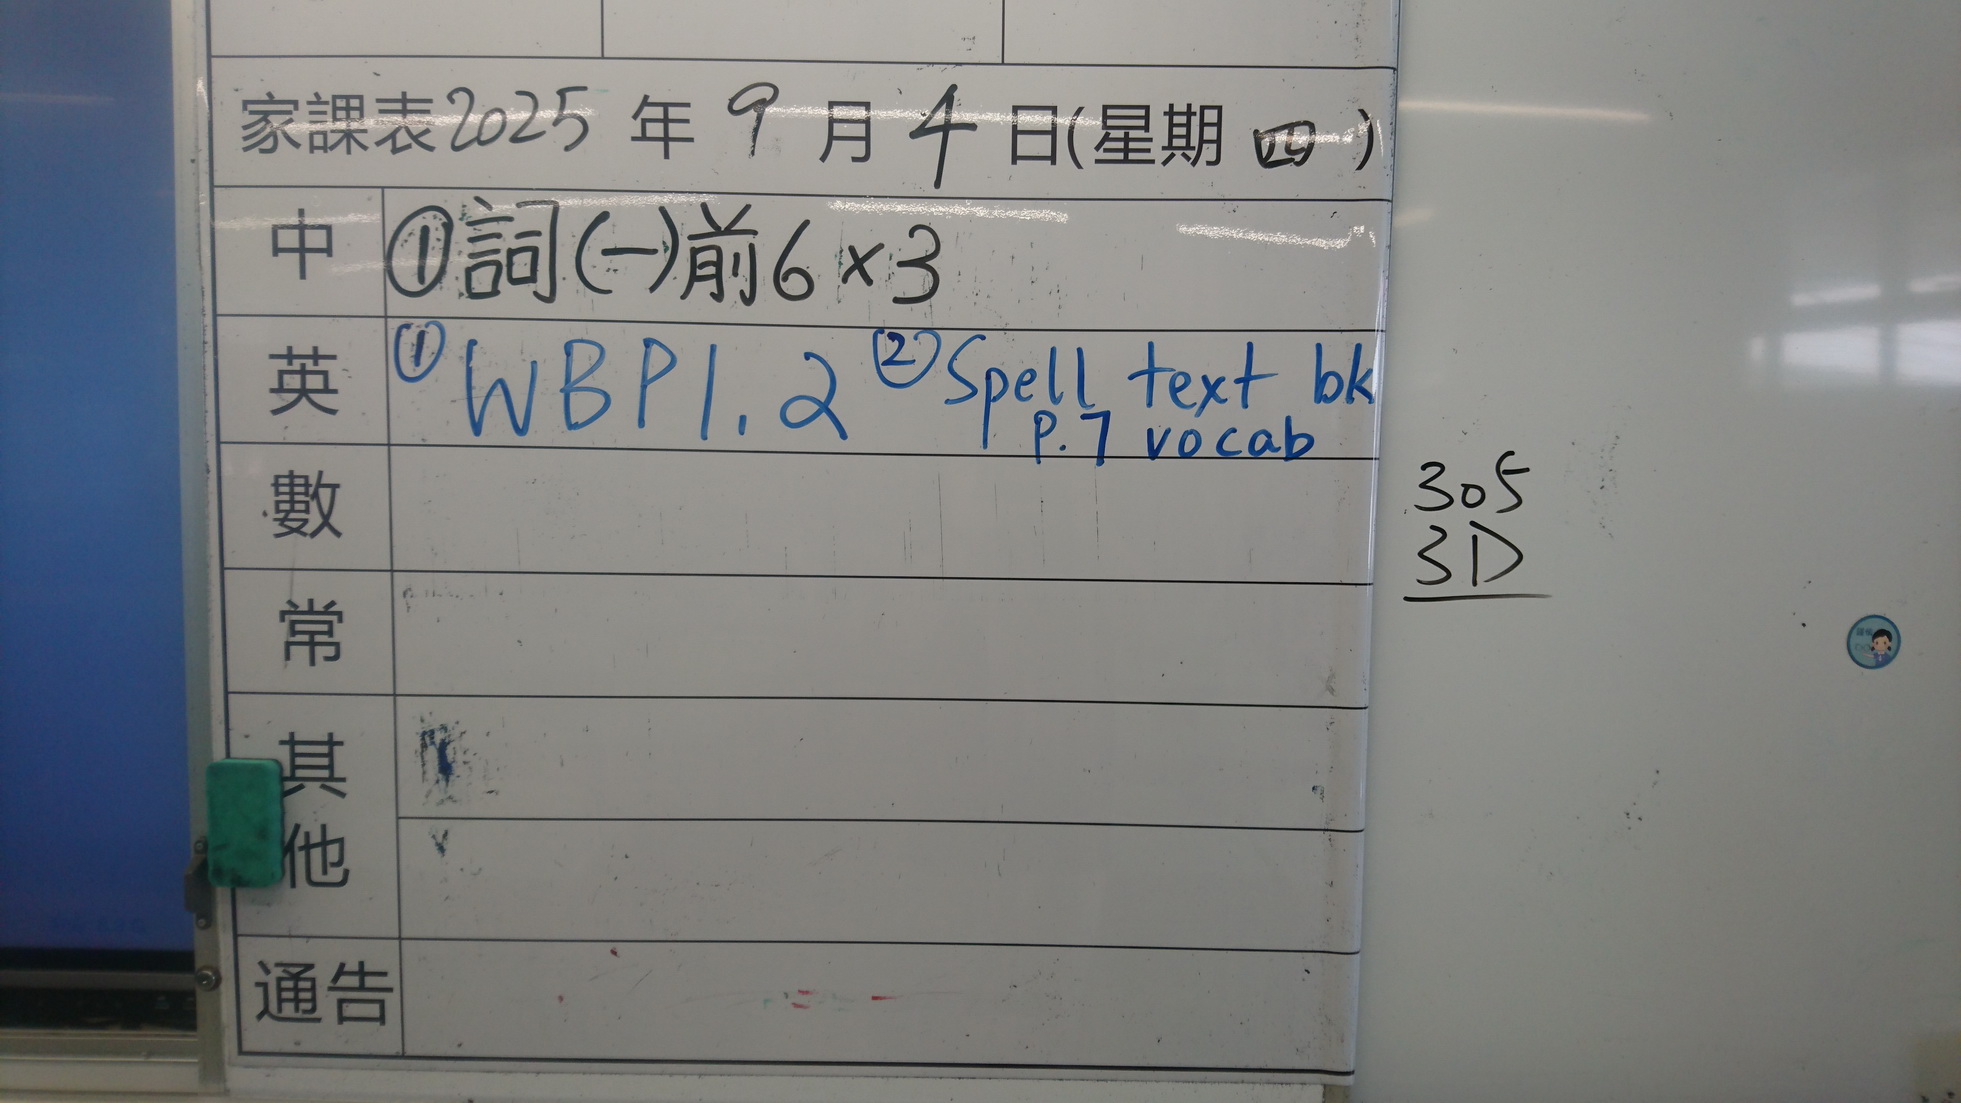 家課表2025年9月4日(星期四)
中 ①詞(一)前6×3
英 ①WBP1.2 ②Spell text bk
p.7 vocab
數
常
其他
通告
305
3D